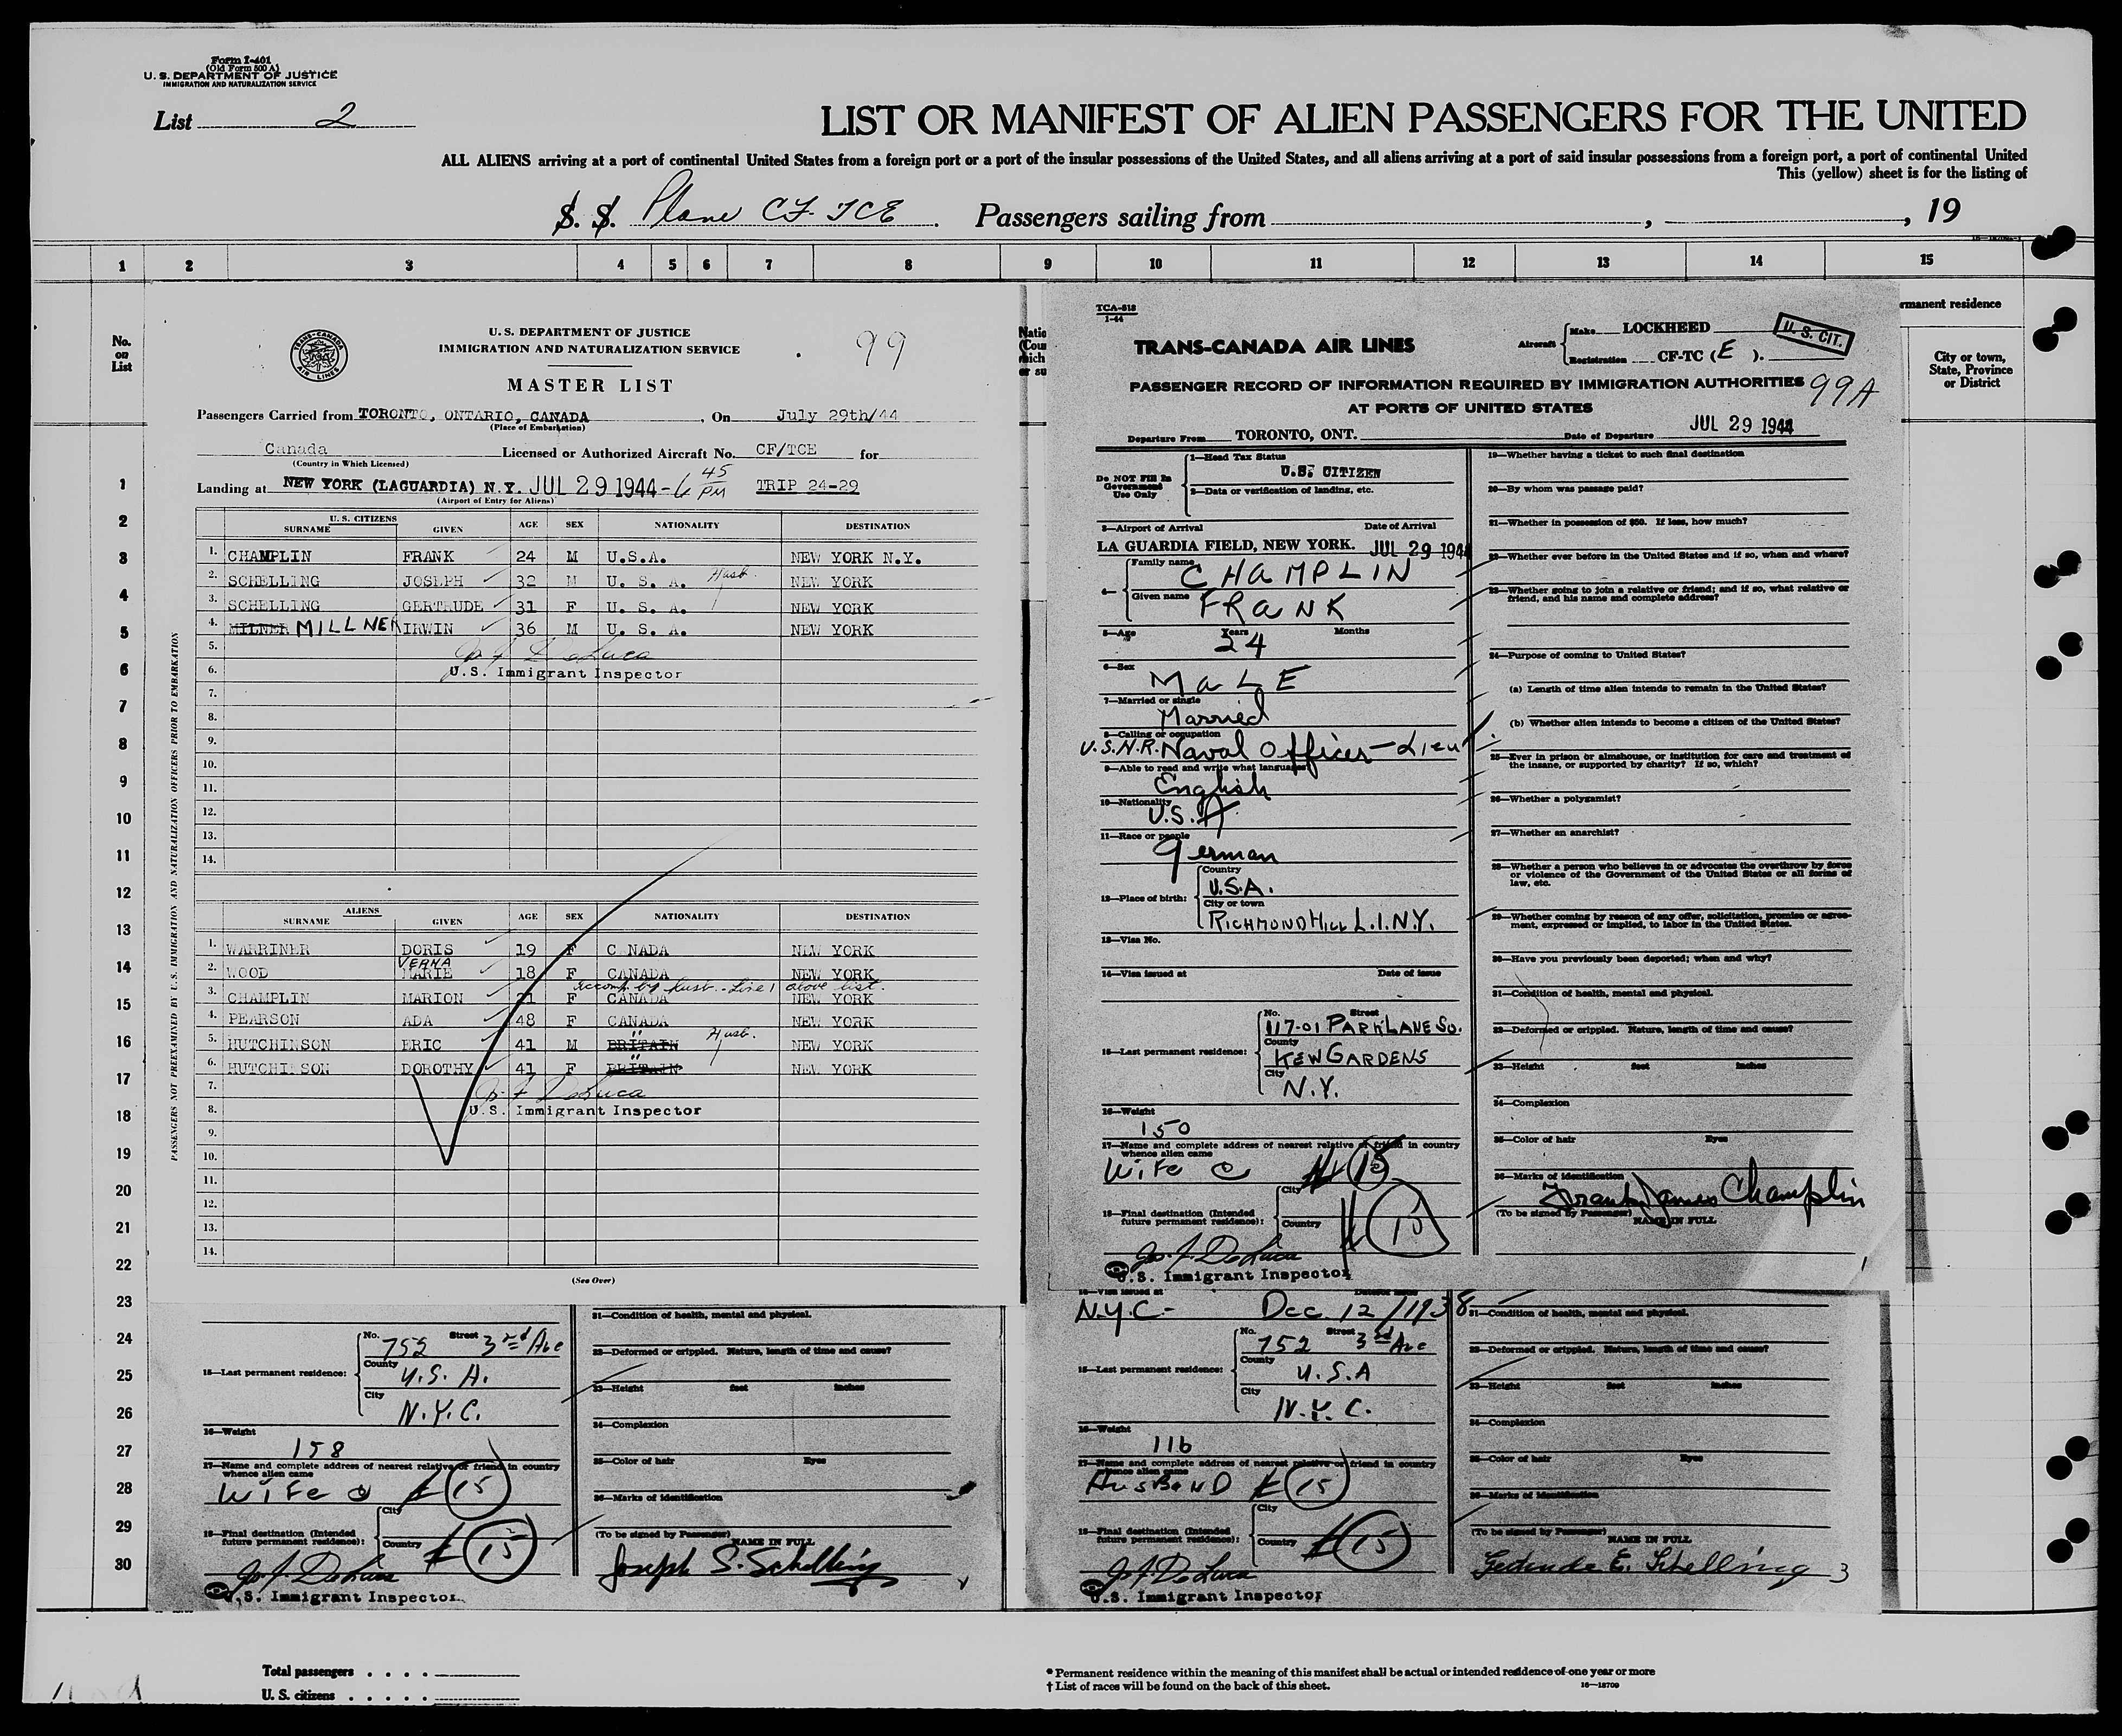 Form I-401
(Old Form 500 A)
U. S. DEPARTMENT OF JUSTICE
IMMIGRATION AND NATURALIZATION SERVICE
List 2
LIST OR MANIFEST OF ALIEN PASSENGERS FOR THE UNITED
ALL ALIENS arriving at a port of continental United States from a foreign port or a port of the insular possessions of the United States, and all aliens arriving at a port of said insular possessions from a foreign port, a port of continental United
This (yellow) sheet is for the listing of
S. S. Plane CF-TCE Passengers sailing from , , 19
1 2 3 4 5 6 7 8 9 10 11 12 13 14 15
No. on List
rmanent residence
City or town, State, Province or District
1
2
3
4
5
6
7
8
9
10
11
12
13
14
15
16
17
18
19
20
21
22
23
24
25
26
27
28
29
30
TRANS-CANADA AIR LINES
U. S. DEPARTMENT OF JUSTICE
IMMIGRATION AND NATURALIZATION SERVICE
99
MASTER LIST
Passengers Carried from TORONTO, ONTARIO, CANADA , On July 29th/44
(Place of Embarkation)
Canada Licensed or Authorized Aircraft No. CF/TCE for
(Country in Which Licensed)
Landing at NEW YORK (LAGUARDIA) N.Y. JUL 29 1944 - 6 45 PM TRIP 24-29
(Airport of Entry for Aliens)
PASSENGERS NOT PREEXAMINED BY U. S. IMMIGRATION AND NATURALIZATION OFFICERS PRIOR TO EMBARKATION
U. S. CITIZENS
SURNAME GIVEN AGE SEX NATIONALITY DESTINATION
1. CHAMPLIN FRANK 24 M U.S.A. NEW YORK N.Y.
2. SCHELLING JOSEPH 32 M U. S. A. Husb. NEW YORK
3. SCHELLING GERTRUDE 31 F U. S. A. NEW YORK
4. MILNER MILLNER IRWIN 36 M U. S. A. NEW YORK
5. Jo. F. DeLuca
6. U.S. Immigrant Inspector
7.
8.
9.
10.
11.
12.
13.
14.
ALIENS
SURNAME GIVEN AGE SEX NATIONALITY DESTINATION
1. WARRINER DORIS 19 F CANADA NEW YORK
VERNA
2. WOOD MARIE 18 F CANADA NEW YORK
accomp by husb. - Line 1 above list.
3. CHAMPLIN MARION 21 F CANADA NEW YORK
4. PEARSON ADA 48 F CANADA NEW YORK
5. HUTCHINSON ERIC 41 M " BRITAIN Husb. NEW YORK
6. HUTCHINSON DOROTHY 41 F " BRITAIN NEW YORK
7. Jo. F. DeLuca
8. U.S. Immigrant Inspector
9.
10.
11.
12.
13.
14.
(See Over)
TCA-518
1-44
TRANS-CANADA AIR LINES
Aircraft Make LOCKHEED
Registration CF-TC (E ).
U. S. CIT.
PASSENGER RECORD OF INFORMATION REQUIRED BY IMMIGRATION AUTHORITIES
AT PORTS OF UNITED STATES
99A
Departure From TORONTO, ONT. Date of Departure JUL 29 1944
Do NOT Fill In Government Use Only
1—Head Tax Status
U.S. CITIZEN
2—Data or verification of landing, etc.
3—Airport of Arrival Date of Arrival
LA GUARDIA FIELD, NEW YORK. JUL 29 1944
4— Family name CHAMPLIN
Given name FRANK
5—Age Years Months
24
6—Sex
MALE
7—Married or single
Married
8—Calling or occupation
U.S.N.R. Naval Officer - Lieut
9—Able to read and write what languages
English
10—Nationality
U.S.A
11—Race or people
German
12—Place of birth: Country
U.S.A.
City or town
RICHMOND HILL L.I. N.Y.
13—Visa No.
14—Visa issued at Date of issue
15—Last permanent residence: No. Street
117-01 PARK LANE SO.
County
KEW GARDENS
City
N.Y.
16—Weight
150
17—Name and complete address of nearest relative or friend in country whence alien came
Wife c # 15
18—Final destination (Intended future permanent residence): City
Country # 15
Jo. F. DeLuca
U.S. Immigrant Inspector
19—Whether having a ticket to such final destination
20—By whom was passage paid?
21—Whether in possession of $50. If less, how much?
22—Whether ever before in the United States and if so, when and where?
23—Whether going to join a relative or friend; and if so, what relative or friend, and his name and complete address?
24—Purpose of coming to United States?
(a) Length of time alien intends to remain in the United States?
(b) Whether alien intends to become a citizen of the United States?
25—Ever in prison or almshouse, or institution for care and treatment of the insane, or supported by charity? If so, which?
26—Whether a polygamist?
27—Whether an anarchist?
28—Whether a person who believes in or advocates the overthrow by force or violence of the Government of the United States or all forms of law, etc.
29—Whether coming by reason of any offer, solicitation, promise or agreement, expressed or implied, to labor in the United States.
30—Have you previously been deported; when and why?
31—Condition of health, mental and physical.
32—Deformed or crippled. Nature, length of time and cause?
33—Height feet inches
34—Complexion
35—Color of hair Eyes
36—Marks of identification
Frank James Champlin
(To be signed by Passenger) NAME IN FULL
1
15—Last permanent residence: No. Street
752 3rd Ave
County
U.S.A.
City
N.Y.C.
16—Weight
158
17—Name and complete address of nearest relative or friend in country whence alien came
Wife c # 15
18—Final destination (Intended future permanent residence): City
Country # 15
Jo. F. DeLuca
U.S. Immigrant Inspector
31—Condition of health, mental and physical.
32—Deformed or crippled. Nature, length of time and cause?
33—Height feet inches
34—Complexion
35—Color of hair Eyes
36—Marks of identification
(To be signed by Passenger) NAME IN FULL
Joseph S. Schelling
14—Visa issued at Date of issue
N.Y.C- Dec. 12/1938
15—Last permanent residence: No. Street
752 3rd Ave
County
U.S.A
City
N.Y.C.
16—Weight
116
17—Name and complete address of nearest relative or friend in country whence alien came
HUSBAND # 15
18—Final destination (Intended future permanent residence): City
Country # 15
Jo. F. DeLuca
U.S. Immigrant Inspector
31—Condition of health, mental and physical.
32—Deformed or crippled. Nature, length of time and cause?
33—Height feet inches
34—Complexion
35—Color of hair Eyes
36—Marks of identification
(To be signed by Passenger) NAME IN FULL
Gertrude E. Schelling 3
Total passengers . . . .
U. S. citizens . . . . .
* Permanent residence within the meaning of this manifest shall be actual or intended residence of one year or more
† List of races will be found on the back of this sheet.
16—18709